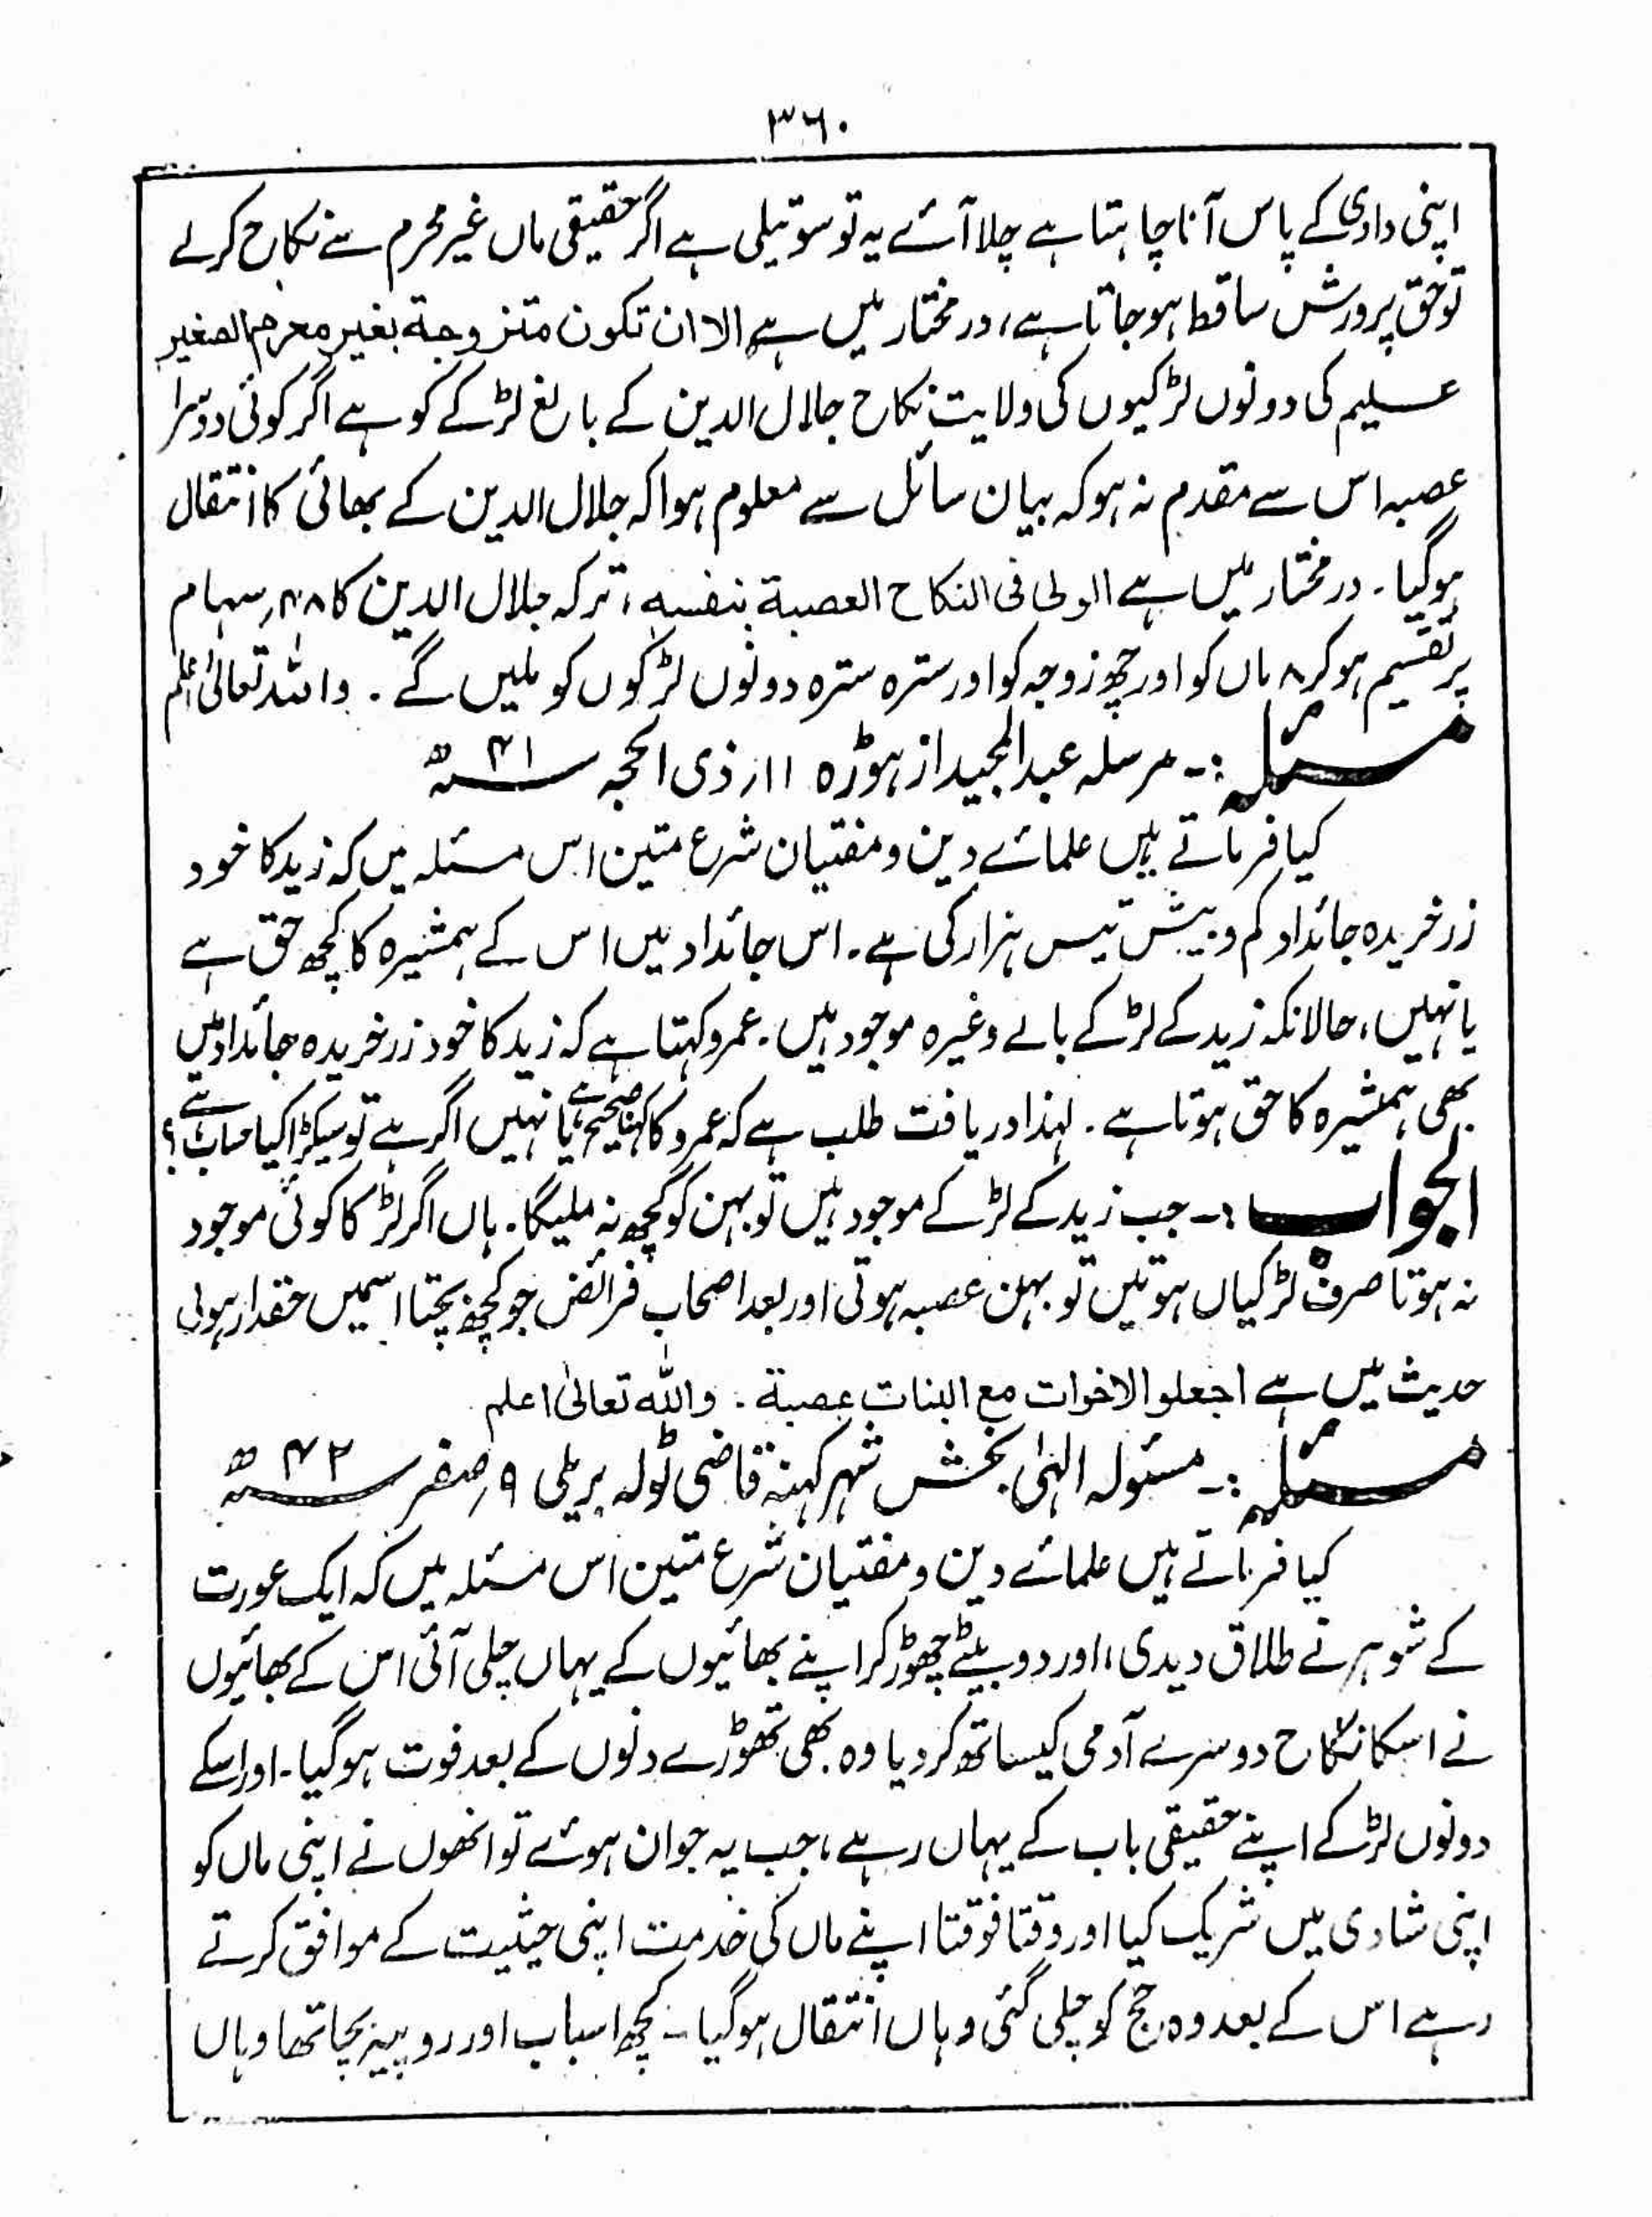 ۳۶۰
اپنی دادی کے پاس آنا چاہتا ہے چلا آئے یہ تو سوتیلی ہے اگر حقیقی ماں غیر محرم سے نکاح کرلے
تو حق پرورش ساقط ہوجاتا ہے، در مختار میں ہے الا ان تکون متزوجۃ بغیر محرم الصغیر
علیم کی دونوں لڑکیوں کی ولایت نکاح جلال الدین کے بالغ لڑکے کو ہے اگر کوئی دوسرا
عصبہ اس سے مقدم نہ ہو کہ بیان سائل سے معلوم ہوا کہ جلال الدین کے بھائی کا انتقال
ہوگیا ۔ در مختار میں ہے الولی فی النکاح العصبۃ بنفسہ، ترکہ جلال الدین کا ۴۸؍ سہام
پر تقسیم ہو کر ۸ ماں کو اور چھ زوجہ کو اور سترہ سترہ دونوں لڑکوں کو ملیں گے ۔ واللہ تعالیٰ اعلم
مسئلہ :۔ مرسلہ عبدالمجید از ہوڑہ ۱۱؍ ذی الحجہ ۴۱ سنہ ھ
کیا فرماتے ہیں علمائے دین و مفتیان شرع متین اس مسئلہ میں کہ زید کا خود
زر خریدہ جائداد کم و بیش تیس ہزار کی ہے ۔ اس جائداد میں اس کے ہمشیرہ کا کچھ حق ہے
یا نہیں، حالانکہ زید کے لڑکے بالے وغیرہ موجود ہیں ۔ عمرو کہتا ہے کہ زید کا خود زر خریدہ جائداد میں
بھی ہمشیرہ کا حق ہوتا ہے ۔ لہذا دریافت طلب ہے کہ عمرو کا کہنا صحیح ہے یا نہیں اگر ہے تو سیکڑا کیا حساب ہے؟
الجواب :۔ جب زید کے لڑکے موجود ہیں تو بہن کو کچھ نہ ملیگا ۔ ہاں اگر لڑکا کوئی موجود
نہ ہوتا صرف لڑکیاں ہوتیں تو بہن عصبہ ہوتی اور بعد اصحاب فرائض جو کچھ بچتا اسمیں حقدار ہوتی
حدیث میں ہے اجعلوا الاخوات مع البنات عصبۃ ۔ واللہ تعالیٰ اعلم
مسئلہ :۔ مسئولہ الہٰی بخش شہر کہنہ قاضی ٹولہ بریلی ۹؍ صفر ۴۲ سنہ ھ
کیا فرماتے ہیں علمائے دین و مفتیان شرع متین اس مسئلہ میں کہ ایک عورت
کے شوہر نے طلاق دیدی، اور دو بیٹے چھوڑ کر اپنے بھائیوں کے یہاں چلی آئی اس کے بھائیوں
نے اسکا نکاح دوسرے آدمی کیساتھ کردیا وہ بھی تھوڑے دنوں کے بعد فوت ہوگیا ۔ اور اسکے
دونوں لڑکے اپنے حقیقی باپ کے یہاں رہے، جب یہ جوان ہوئے تو انھوں نے اپنی ماں کو
اپنی شادی میں شریک کیا اور وقتا فوقتا اپنے ماں کی خدمت اپنی حیثیت کے موافق کرتے
رہے اس کے بعد وہ حج کو چلی گئی وہاں انتقال ہوگیا ۔ کچھ اسباب اور روپیہ بچا تھا وہاں